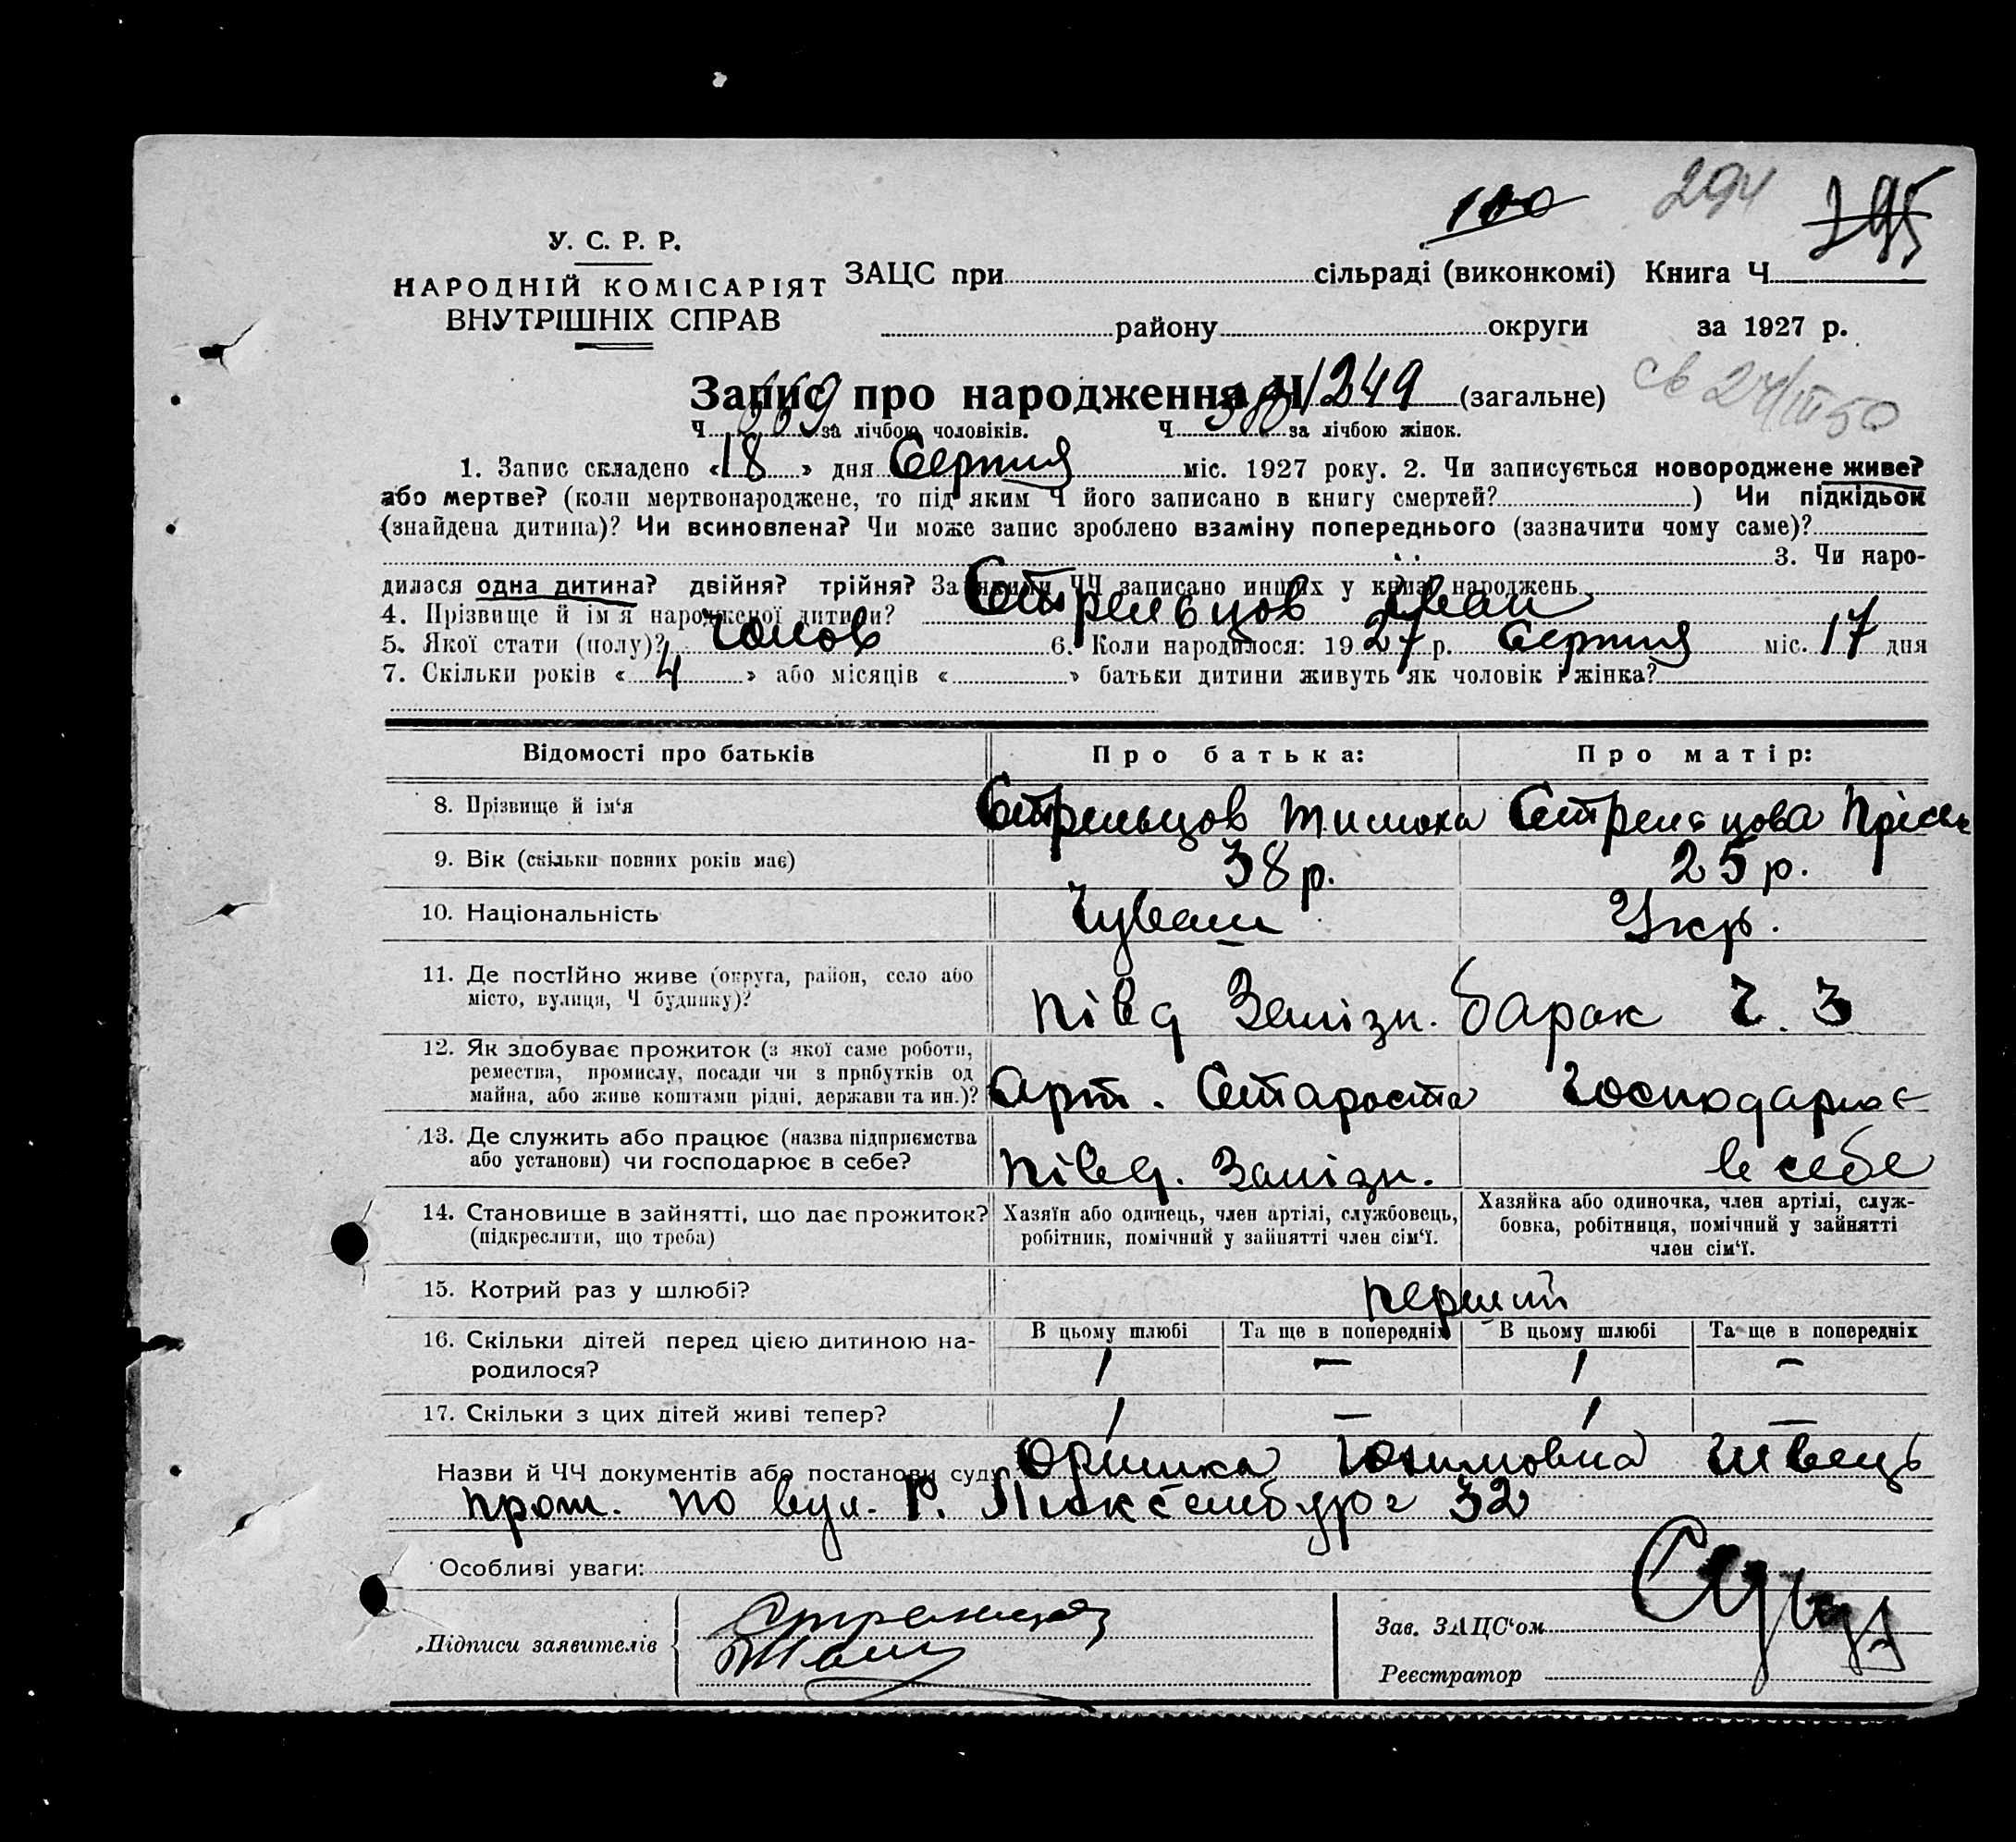 100 294 295
У. С. Р. Р.
НАРОДНІЙ КОМІСАРІЯТ
ВНУТРІШНІХ СПРАВ
ЗАЦС при сільраді (виконкомі) Книга Ч.
району округи за 1927 р.
Запис про народження Ч 1249 (загальне)
св 24/III 50
Ч. 669 за лічбою чоловіків. Ч. 580 за лічбою жінок.
1. Запис складено «18» дня Серпня міс. 1927 року. 2. Чи записується новороджене живе?
або мертве? (коли мертвонароджене, то під яким Ч його записано в книгу смертей? ) Чи підкідьок
(знайдена дитина)? Чи всиновлена? Чи може запис зроблено взаміну попереднього (зазначити чому саме)?
3. Чи наро-
дилася одна дитина? двійня? трійня? За якими ЧЧ записано инших у книзі народжень
4. Прізвище й ім'я народженої дитини? Стрельцов Іван
5. Якої стати (полу)? чолов 6. Коли народилося: 1927 р. Серпня міс. 17 дня
7. Скільки років «4» або місяців « » батьки дитини живуть як чоловік і жінка?
Відомості про батьків Про батька: Про матір:
8. Прізвище й ім'я Стрельцов Тимоха Стрельцова Пріська
9. Вік (скільки повних років має) 38 р. 25 р.
10. Національність Чуваш Укр.
11. Де постІйно живе (округа, район, село або
місто, вулиця, Ч будинку)? Півд Залізн. барак Ч. 3
12. Як здобуває прожиток (з якої саме роботи,
ремества, промислу, посади чи з прибутків од
майна, або живе коштами рідні, держави та ин.)? Арт. Староста Господарює
13. Де служить або працює (назва підприємства
або установи) чи господарює в себе? Півд. Залізн. в себе
14. Становище в зайнятті, що дає прожиток?
(підкреслити, що треба)
Хазяїн або одинець, член артілі, службовець,
робітник, помічний у зайнятті член сім'ї.
Хазяйка або одиночка, член артілі, служ-
бовка, робітниця, помічний у зайнятті
член сім'ї.
15. Котрий раз у шлюбі? перший
16. Скільки дітей перед цією дитиною на-
родилося?
В цьому шлюбі Та ще в попередніх В цьому шлюбі Та ще в попередніх
1 — 1 —
17. Скільки з цих дітей живі тепер? 1 — 1 —
Назви й ЧЧ документів або постанови суду Оришка Юхимовна Швець
прот. по вул. Р. Люксембург 32
Особливі уваги:
Підписи заявителів Стрельцов
Зав. ЗАЦС'ом
Реєстратор